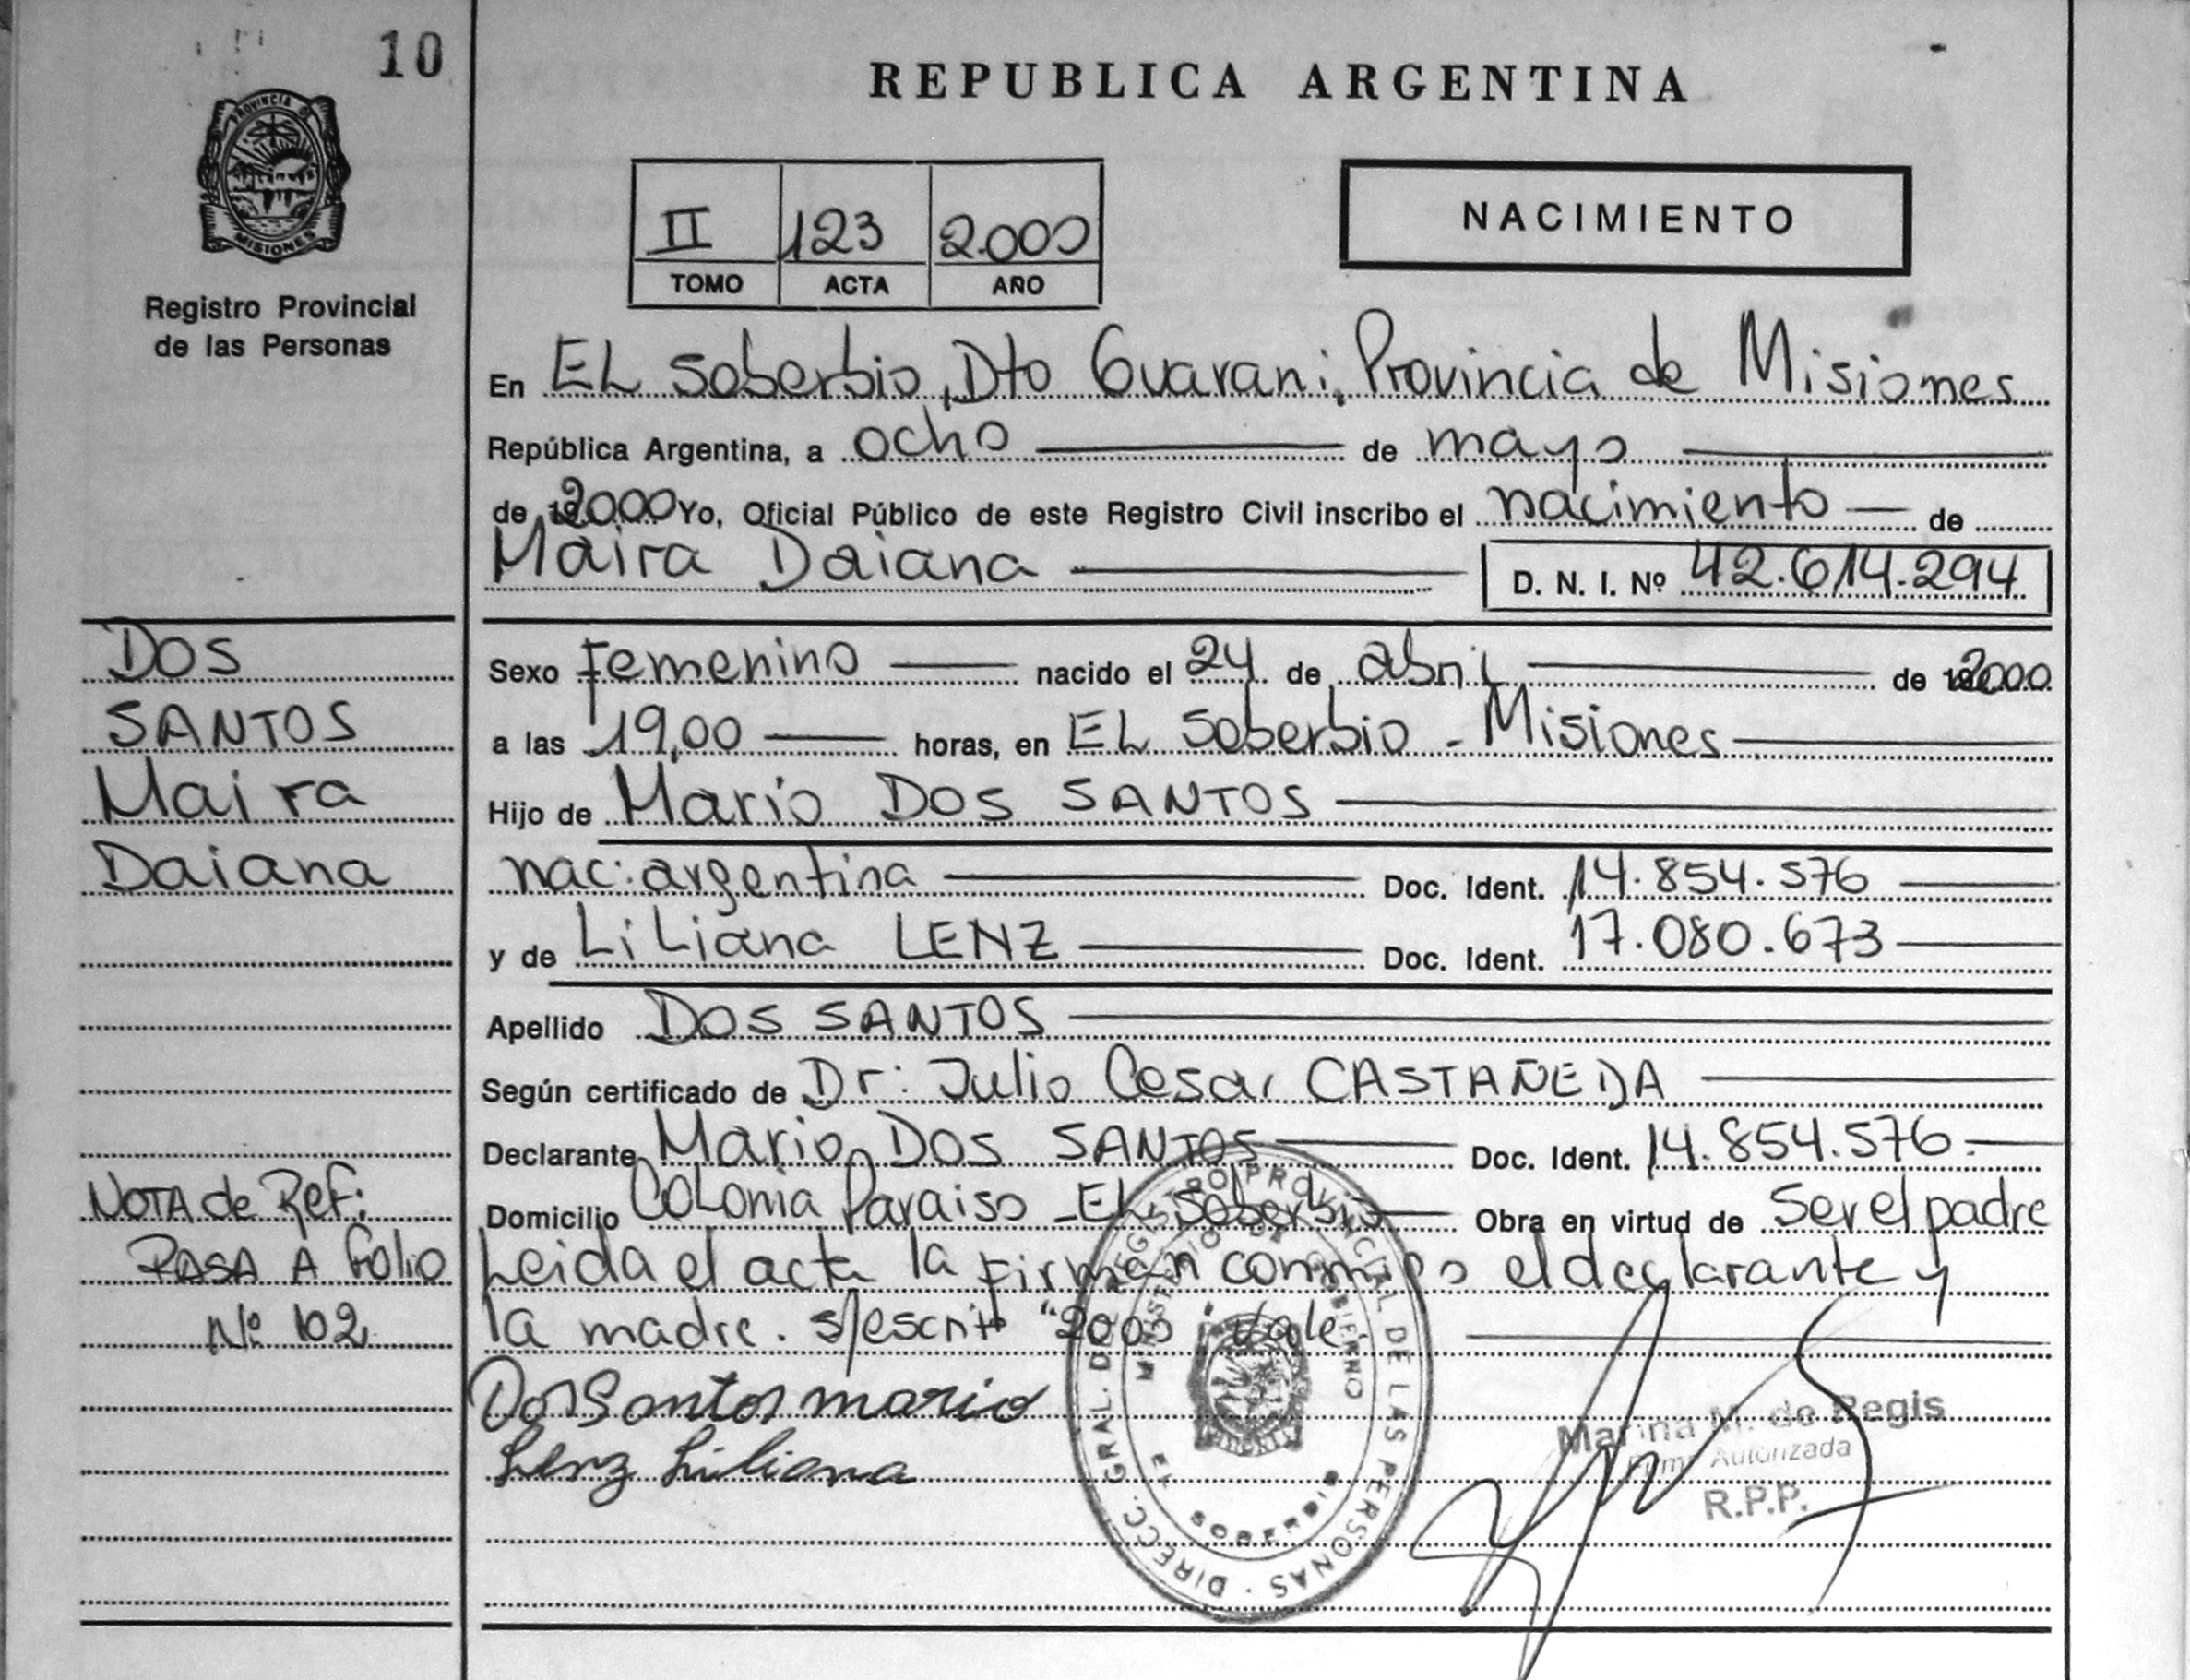 10
PROVINCIA DE
MISIONES
Registro Provincial
de las Personas
DOS
SANTOS
Maira
Daiana
NOTA de Ref:
PASA A folio
Nº 102
REPUBLICA ARGENTINA
II 123 2.000
TOMO ACTA AÑO
NACIMIENTO
En EL Soberbio, Dto Guarani, Provincia de Misiones
República Argentina, a ocho de mayo
de 2000 Yo, Oficial Público de este Registro Civil inscribo el nacimiento de
Maira Daiana D. N. I. Nº 42.614.294
Sexo Femenino nacido el 24 de abril de 2000
a las 19,00 horas, en EL Soberbio - Misiones
Hijo de Mario DOS SANTOS
nac: argentina Doc. Ident. 14.854.576
y de LiLiana LENZ Doc. Ident. 17.080.673
Apellido DOS SANTOS
Según certificado de Dr: Julio Cesar CASTAÑEDA
Declarante Mario DOS SANTOS Doc. Ident. 14.854.576.
Domicilio COLonia Paraiso - EL Soberbio Obra en virtud de Ser el padre
Leida el acta la firman conmigo el declarante y
la madre. s/escrito "2000" Vale.
Dos Santos mario
Lenz Liliana
DIRECC. GRAL. DEL REGISTRO PROVINCIAL DE LAS PERSONAS
MINISTERIO DE GOBIERNO
EL SOBERBIO
Marina M. de Regis
Firma Autorizada
R.P.P.